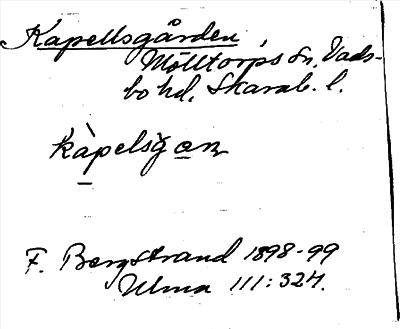 Kapellsgården,
Mölltorps sn, Vads-
bo hd, Skarab. l.
kàpelsg̀an
F. Bergstrand 1898-99
Ulma 111:324.